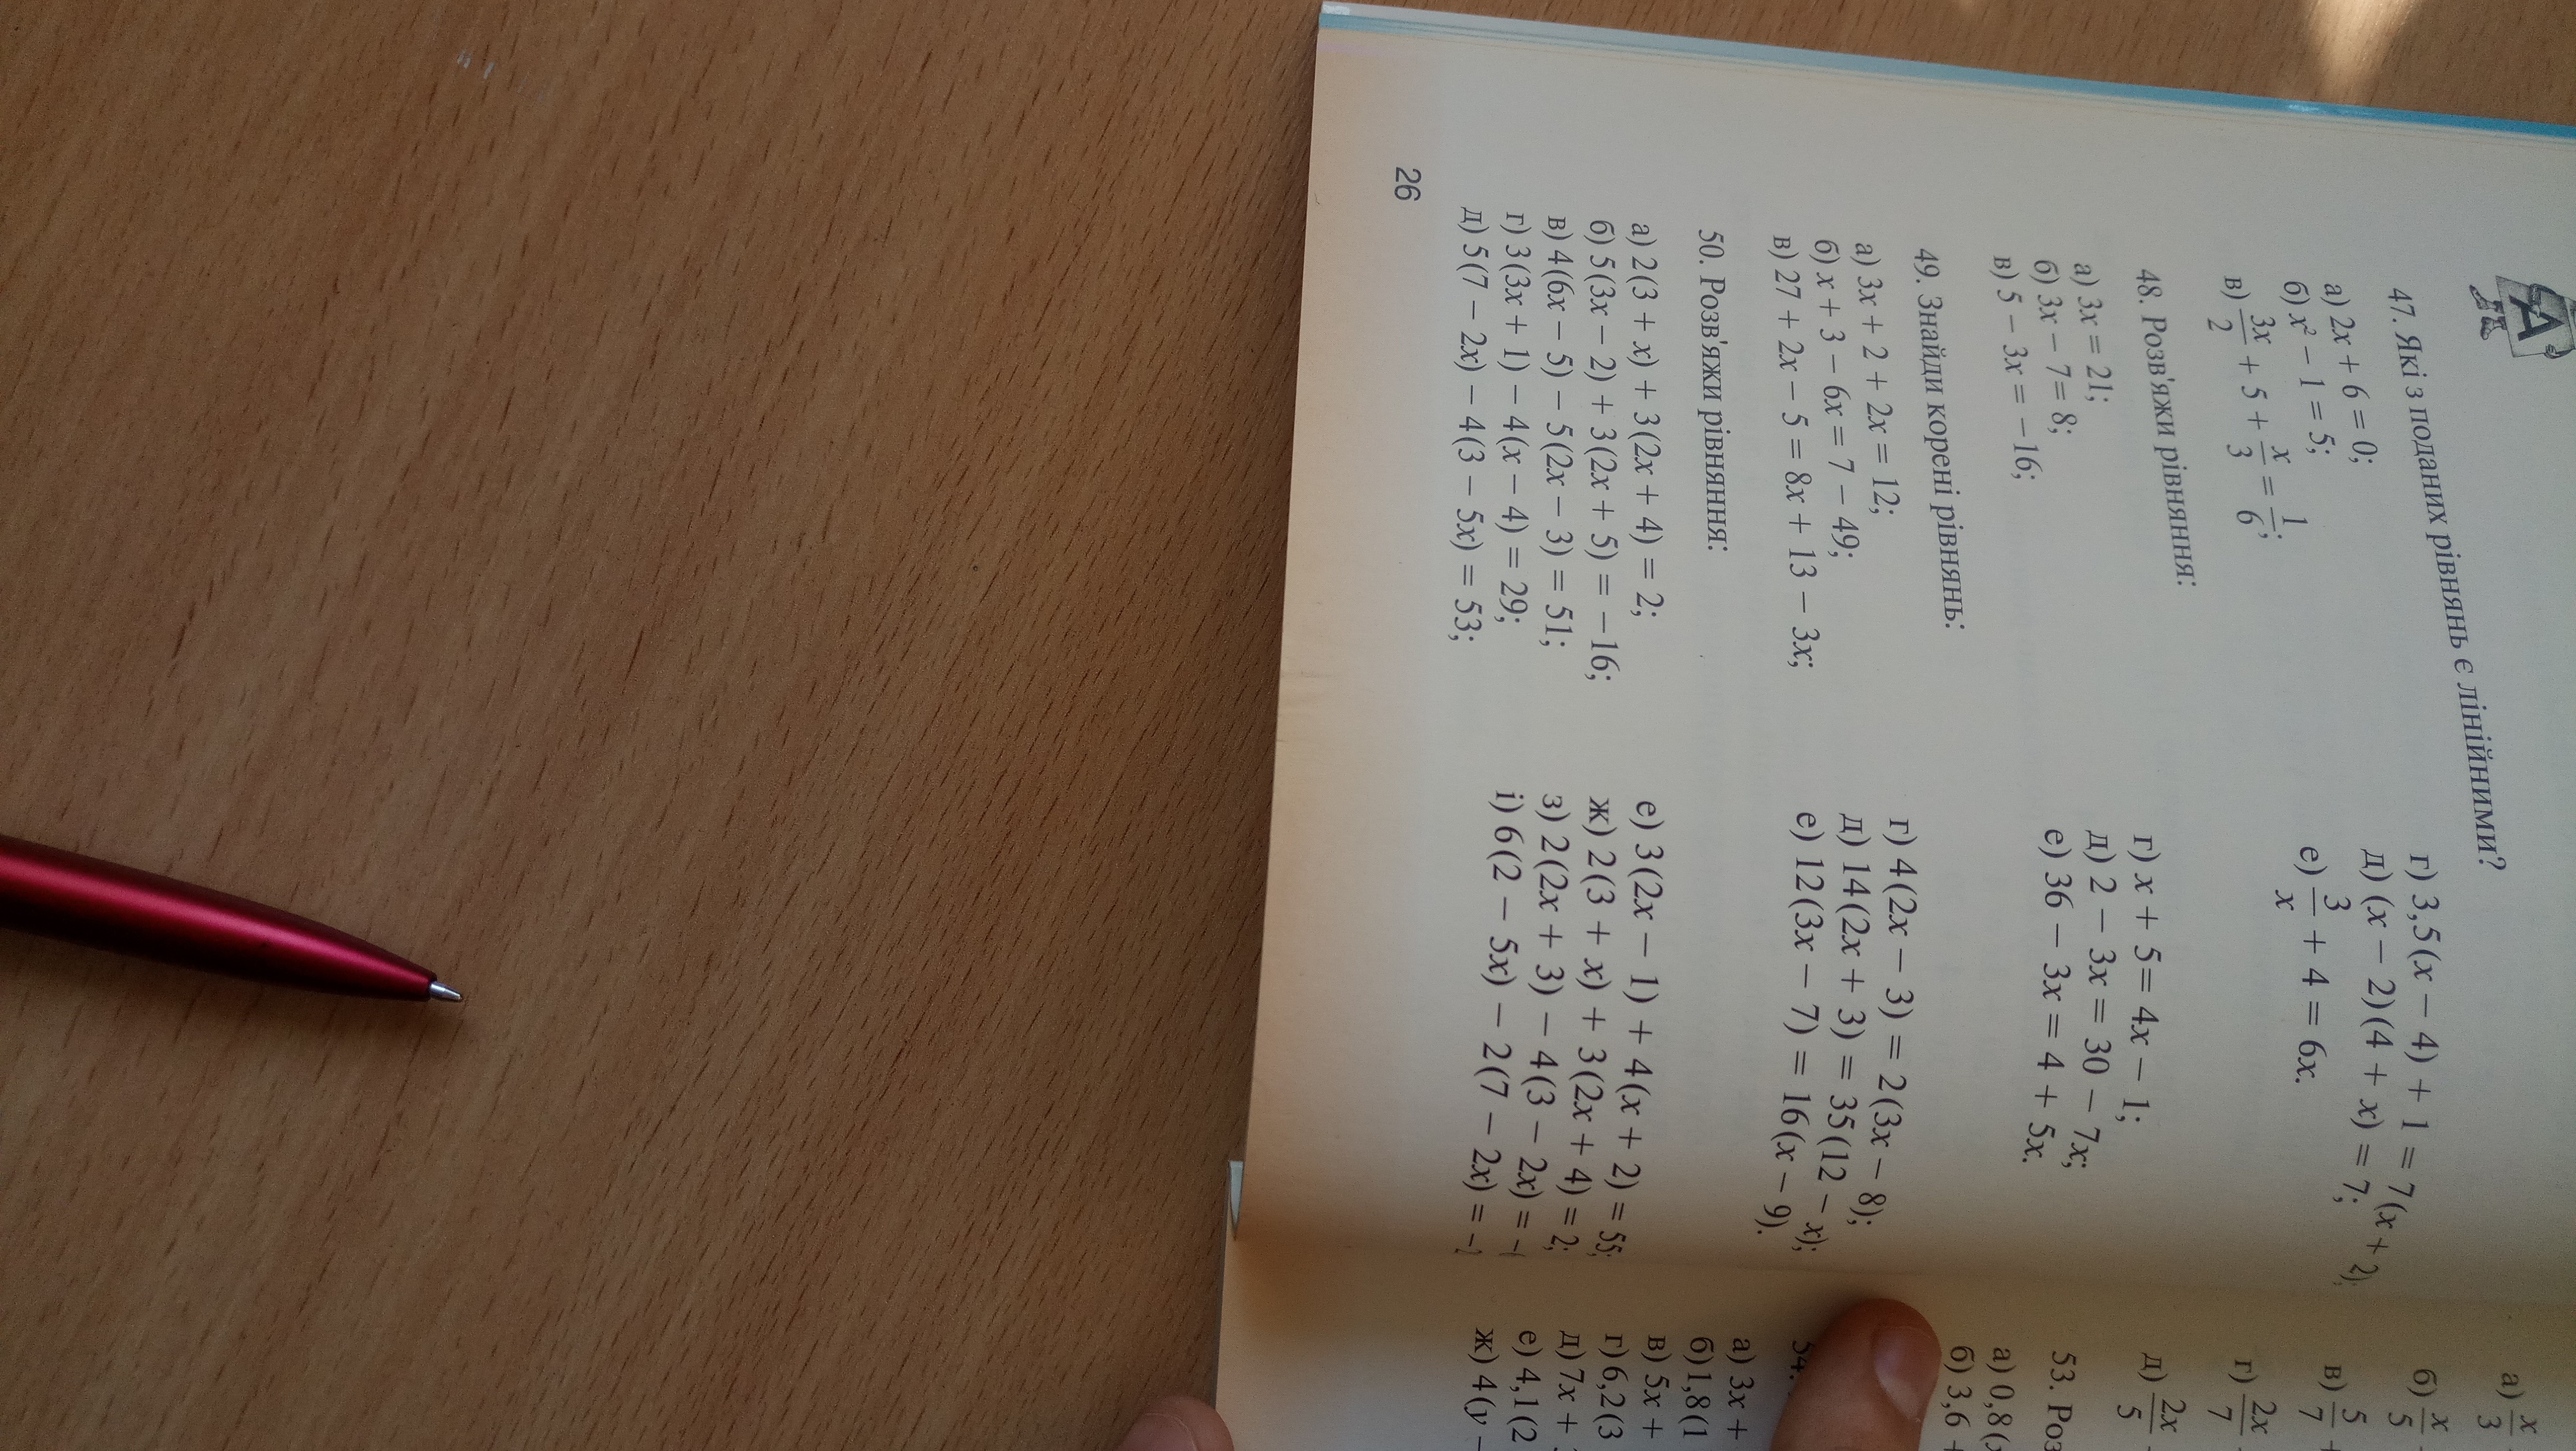 А
47. Які з поданих рівнянь є лінійними?
а) 2x + 6 = 0;
б) x² − 1 = 5;
в) 3x/2 + 5 + x/3 = 1/6;
г) 3,5(x − 4) + 1 = 7(x + 2);
д) (x − 2)(4 + x) = 7;
е) 3/x + 4 = 6x.
48. Розв'яжи рівняння:
а) 3x = 21;
б) 3x − 7 = 8;
в) 5 − 3x = −16;
г) x + 5 = 4x − 1;
д) 2 − 3x = 30 − 7x;
е) 36 − 3x = 4 + 5x.
49. Знайди корені рівнянь:
а) 3x + 2 + 2x = 12;
б) x + 3 − 6x = 7 − 49;
в) 27 + 2x − 5 = 8x + 13 − 3x;
г) 4(2x − 3) = 2(3x − 8);
д) 14(2x + 3) = 35(12 − x);
е) 12(3x − 7) = 16(x − 9).
50. Розв'яжи рівняння:
а) 2(3 + x) + 3(2x + 4) = 2;
б) 5(3x − 2) + 3(2x + 5) = −16;
в) 4(6x − 5) − 5(2x − 3) = 51;
г) 3(3x + 1) − 4(x − 4) = 29;
д) 5(7 − 2x) − 4(3 − 5x) = 53;
е) 3(2x − 1) + 4(x + 2) = 55;
ж) 2(3 + x) + 3(2x + 4) = 2;
з) 2(2x + 3) − 4(3 − 2x) = −
і) 6(2 − 5x) − 2(7 − 2x) = −
26
а) x/3
б) x/5
в) 5/7
г) 2x/7
д) 2x/5
53. Роз
а) 0,8(
б) 3,6 +
54.
а) 3x +
б) 1,8(1
в) 5x +
г) 6,2(3
д) 7x +
е) 4,1(2
ж) 4(y −